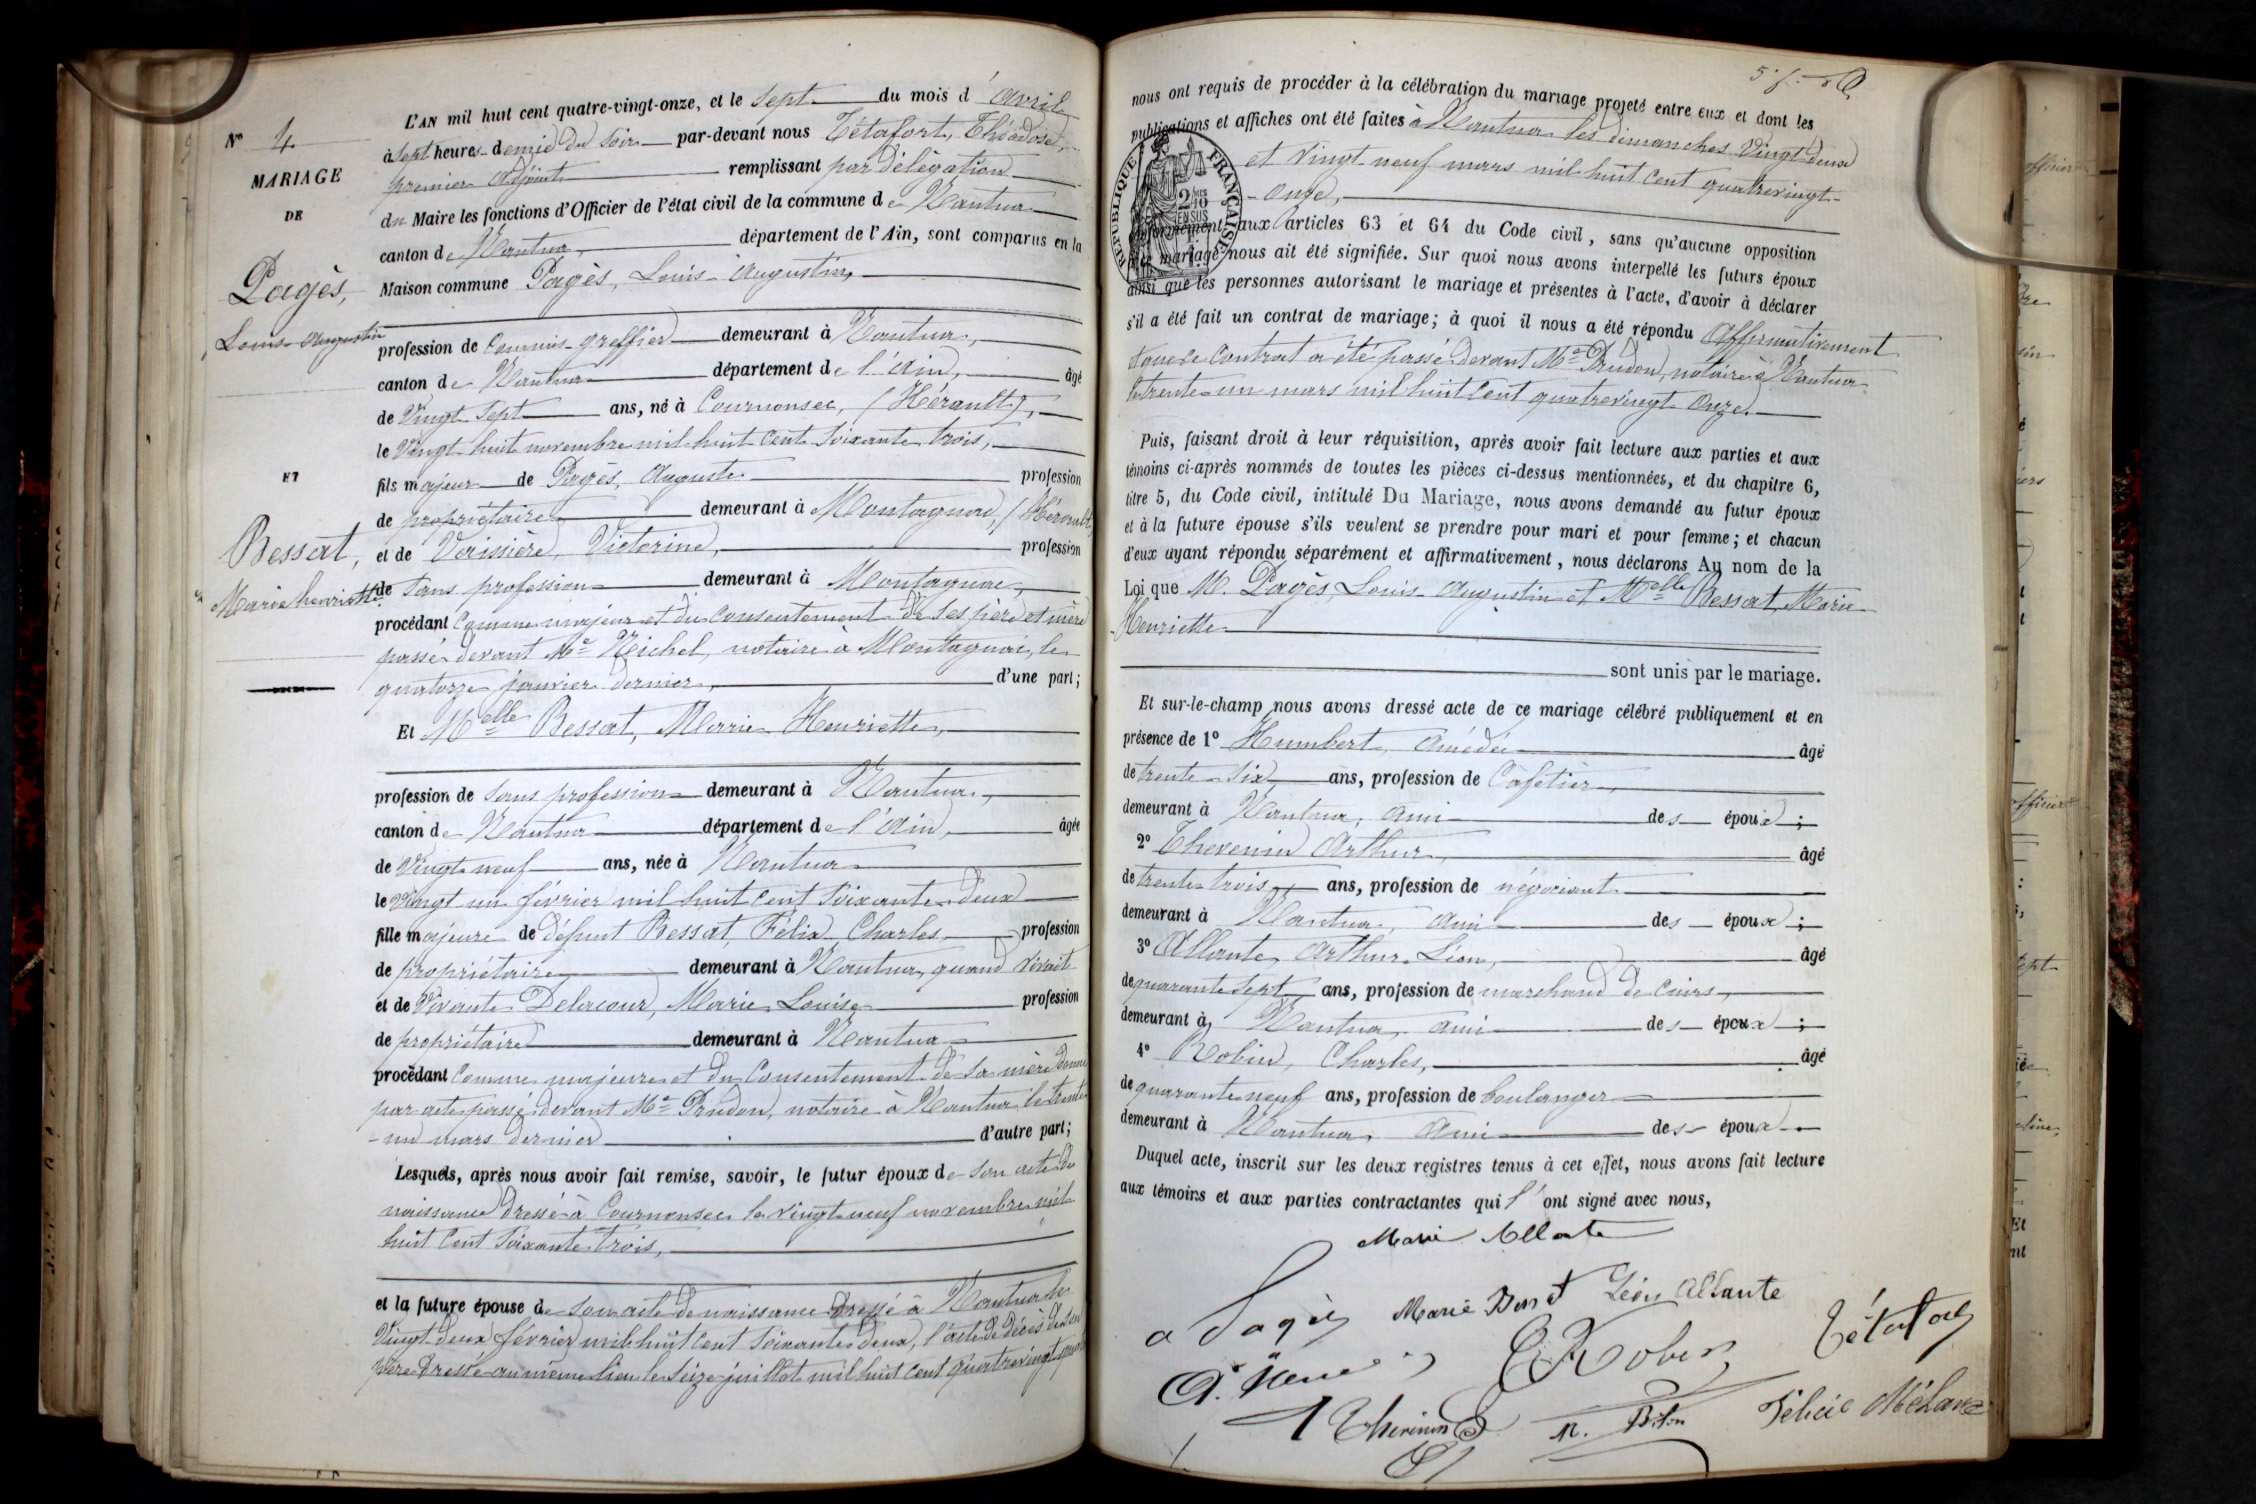 N° 4
MARIAGE
DE
Pagès,
Louis Augustin
ET
Bessat,
Marie henriette
L'AN mil huit cent quatre-vingt-onze, et le sept du mois d'avril
à sept heures demie du soir par-devant nous Tétafort, Théodose,
premier adjoint remplissant par délégation
du Maire les fonctions d'Officier de l'état civil de la commune de Nantua
canton de Nantua, département de l'Ain, sont comparus en la
Maison commune Pagès, Louis-Augustin,
profession de Commis-greffier demeurant à Nantua,
canton de Nantua département de l'Ain, âgé
de Vingt Sept ans, né à Cournonsec, (Hérault),
le Vingt huit novembre mil huit cent soixante trois,
fils majeur de Pagès, Auguste profession
de propriétaire demeurant à Montagnac, (Hérault)
et de Vaissière, Victorine, profession
de sans profession demeurant à Montagnac,
procédant comme majeur et du consentement de ses père et mère
passé devant Me Michel, notaire à Montagnac, le
quatorze janvier dernier, d'une part;
Et Melle Bessat, Marie Henriette,
profession de sans profession demeurant à Nantua,
canton de Nantua département de l'Ain, âgée
de Vingt neuf ans, née à Nantua
le vingt un février mil huit cent soixante deux
fille majeure de défunt Bessat, Félix Charles profession
de propriétaire demeurant à Nantua, quand vivait
et de vivante Delacour, Marie Louise profession
de propriétaire demeurant à Nantua
procédant comme majeure et du consentement de sa mère donné
par acte passé devant Me Prudon, notaire à Nantua le trente
-un mars dernier d'autre part;
Lesquels, après nous avoir fait remise, savoir, le futur époux de son acte de
naissance dressé à Cournonsec le vingt neuf novembre mil
huit cent soixante trois,
et la future épouse de son acte de naissance dressé à Nantua le
vingt deux février mil huit cent soixante deux, l'acte de décès de son
père dressé au même lieu le seize juillet mil huit cent quatrevingt
nous ont requis de procéder à la célébration du mariage projeté entre eux et dont les
publications et affiches ont été faites à Nantua les dimanches vingt deux
et vingt neuf mars mil huit cent quatrevingt-
-onze,
RÉPUBLIQUE FRANÇAISE
aux articles 63 et 64 du Code civil, sans qu'aucune opposition
mariage nous ait été signifiée. Sur quoi nous avons interpellé les futurs époux
ainsi que les personnes autorisant le mariage et présentes à l'acte, d'avoir à déclarer
s'il a été fait un contrat de mariage; à quoi il nous a été répondu affirmativement
& que le contrat a été passé devant Me Prudon, notaire à Nantua
le trente-un mars mil huit cent quatrevingt onze.
Puis, faisant droit à leur réquisition, après avoir fait lecture aux parties et aux
témoins ci-après nommés de toutes les pièces ci-dessus mentionnées, et du chapitre 6,
titre 5, du Code civil, intitulé Du Mariage, nous avons demandé au futur époux
et à la future épouse s'ils veulent se prendre pour mari et pour femme; et chacun
d'eux ayant répondu séparément et affirmativement, nous déclarons Au nom de la
Loi que M. Pagès Louis-Augustin et Melle Bessat, Marie
Henriette
sont unis par le mariage.
Et sur-le-champ nous avons dressé acte de ce mariage célébré publiquement et en
présence de 1° Humbert, Amédée âgé
de trente six ans, profession de Cafetier,
demeurant à Nantua, ami des époux;
2° Thevenin Arthur, âgé
de trente trois ans, profession de négociant
demeurant à Nantua, ami des époux;
3° Allante, Arthur Léon, âgé
de quarante sept ans, profession de marchand de cuirs,
demeurant à Nantua, ami des époux;
4° Robin, Charles, âgé
de quarante neuf ans, profession de boulanger
demeurant à Nantua, ami des époux.
Duquel acte, inscrit sur les deux registres tenus à cet effet, nous avons fait lecture
aux témoins et aux parties contractantes qui l'ont signé avec nous,
Marie Allante
a Pagès Marie Bessat Léon Allante
C. Robin Tétafort
A Thevenin Félicie